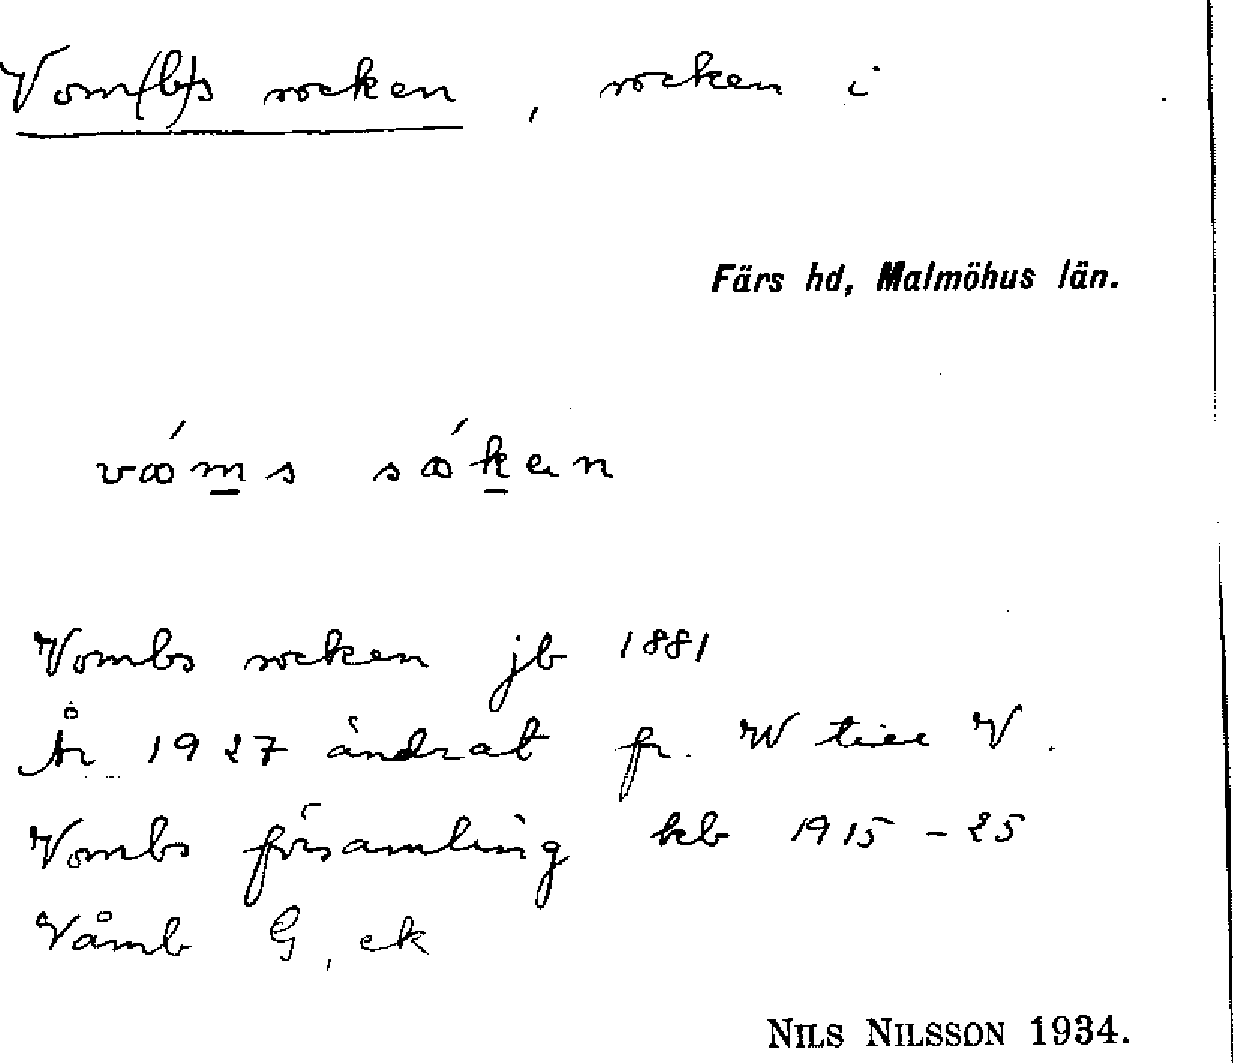 Vom(b)s socken, socken i
Färs hd, Malmöhus län.
vóms sóken
Vombs socken jb 1881
År 1927 ändrat fr. W till V.
Vombs församling kb 1915-25
Våmb G, ek
NILS NILSSON 1934.